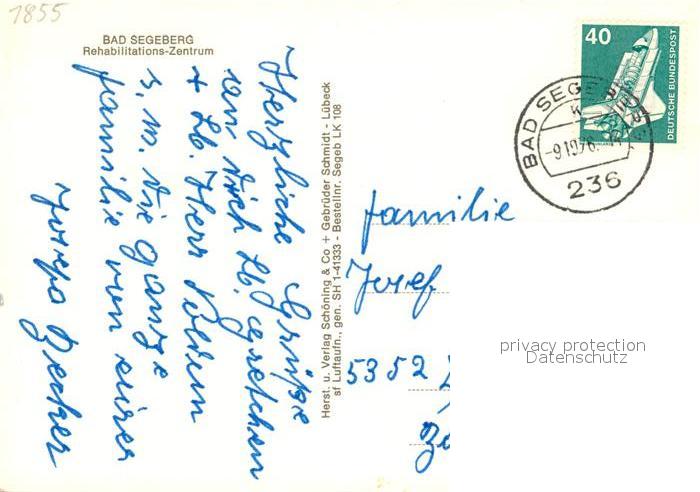 1855
BAD SEGEBERG
Rehabilitations-Zentrum
Herzliche Grüße
an Dich Lb. Gretchen
+ Lb. Herr
s. w. die ganze
familie von eurer
Becker
Herst. u. Verlag Schöning & Co + Gebrüder Schmidt - Lübeck
sf Luftaufn., gen. SH 1-41333 - Bestellnr. Segeb LK 108
40
DEUTSCHE BUNDESPOST
BAD SEGE
-9.10.76.
236
familie
Josef
5352
privacy protection
Datenschutz